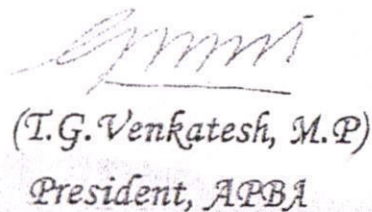 (T.G.Venkatesh, M.P)
President, APBA